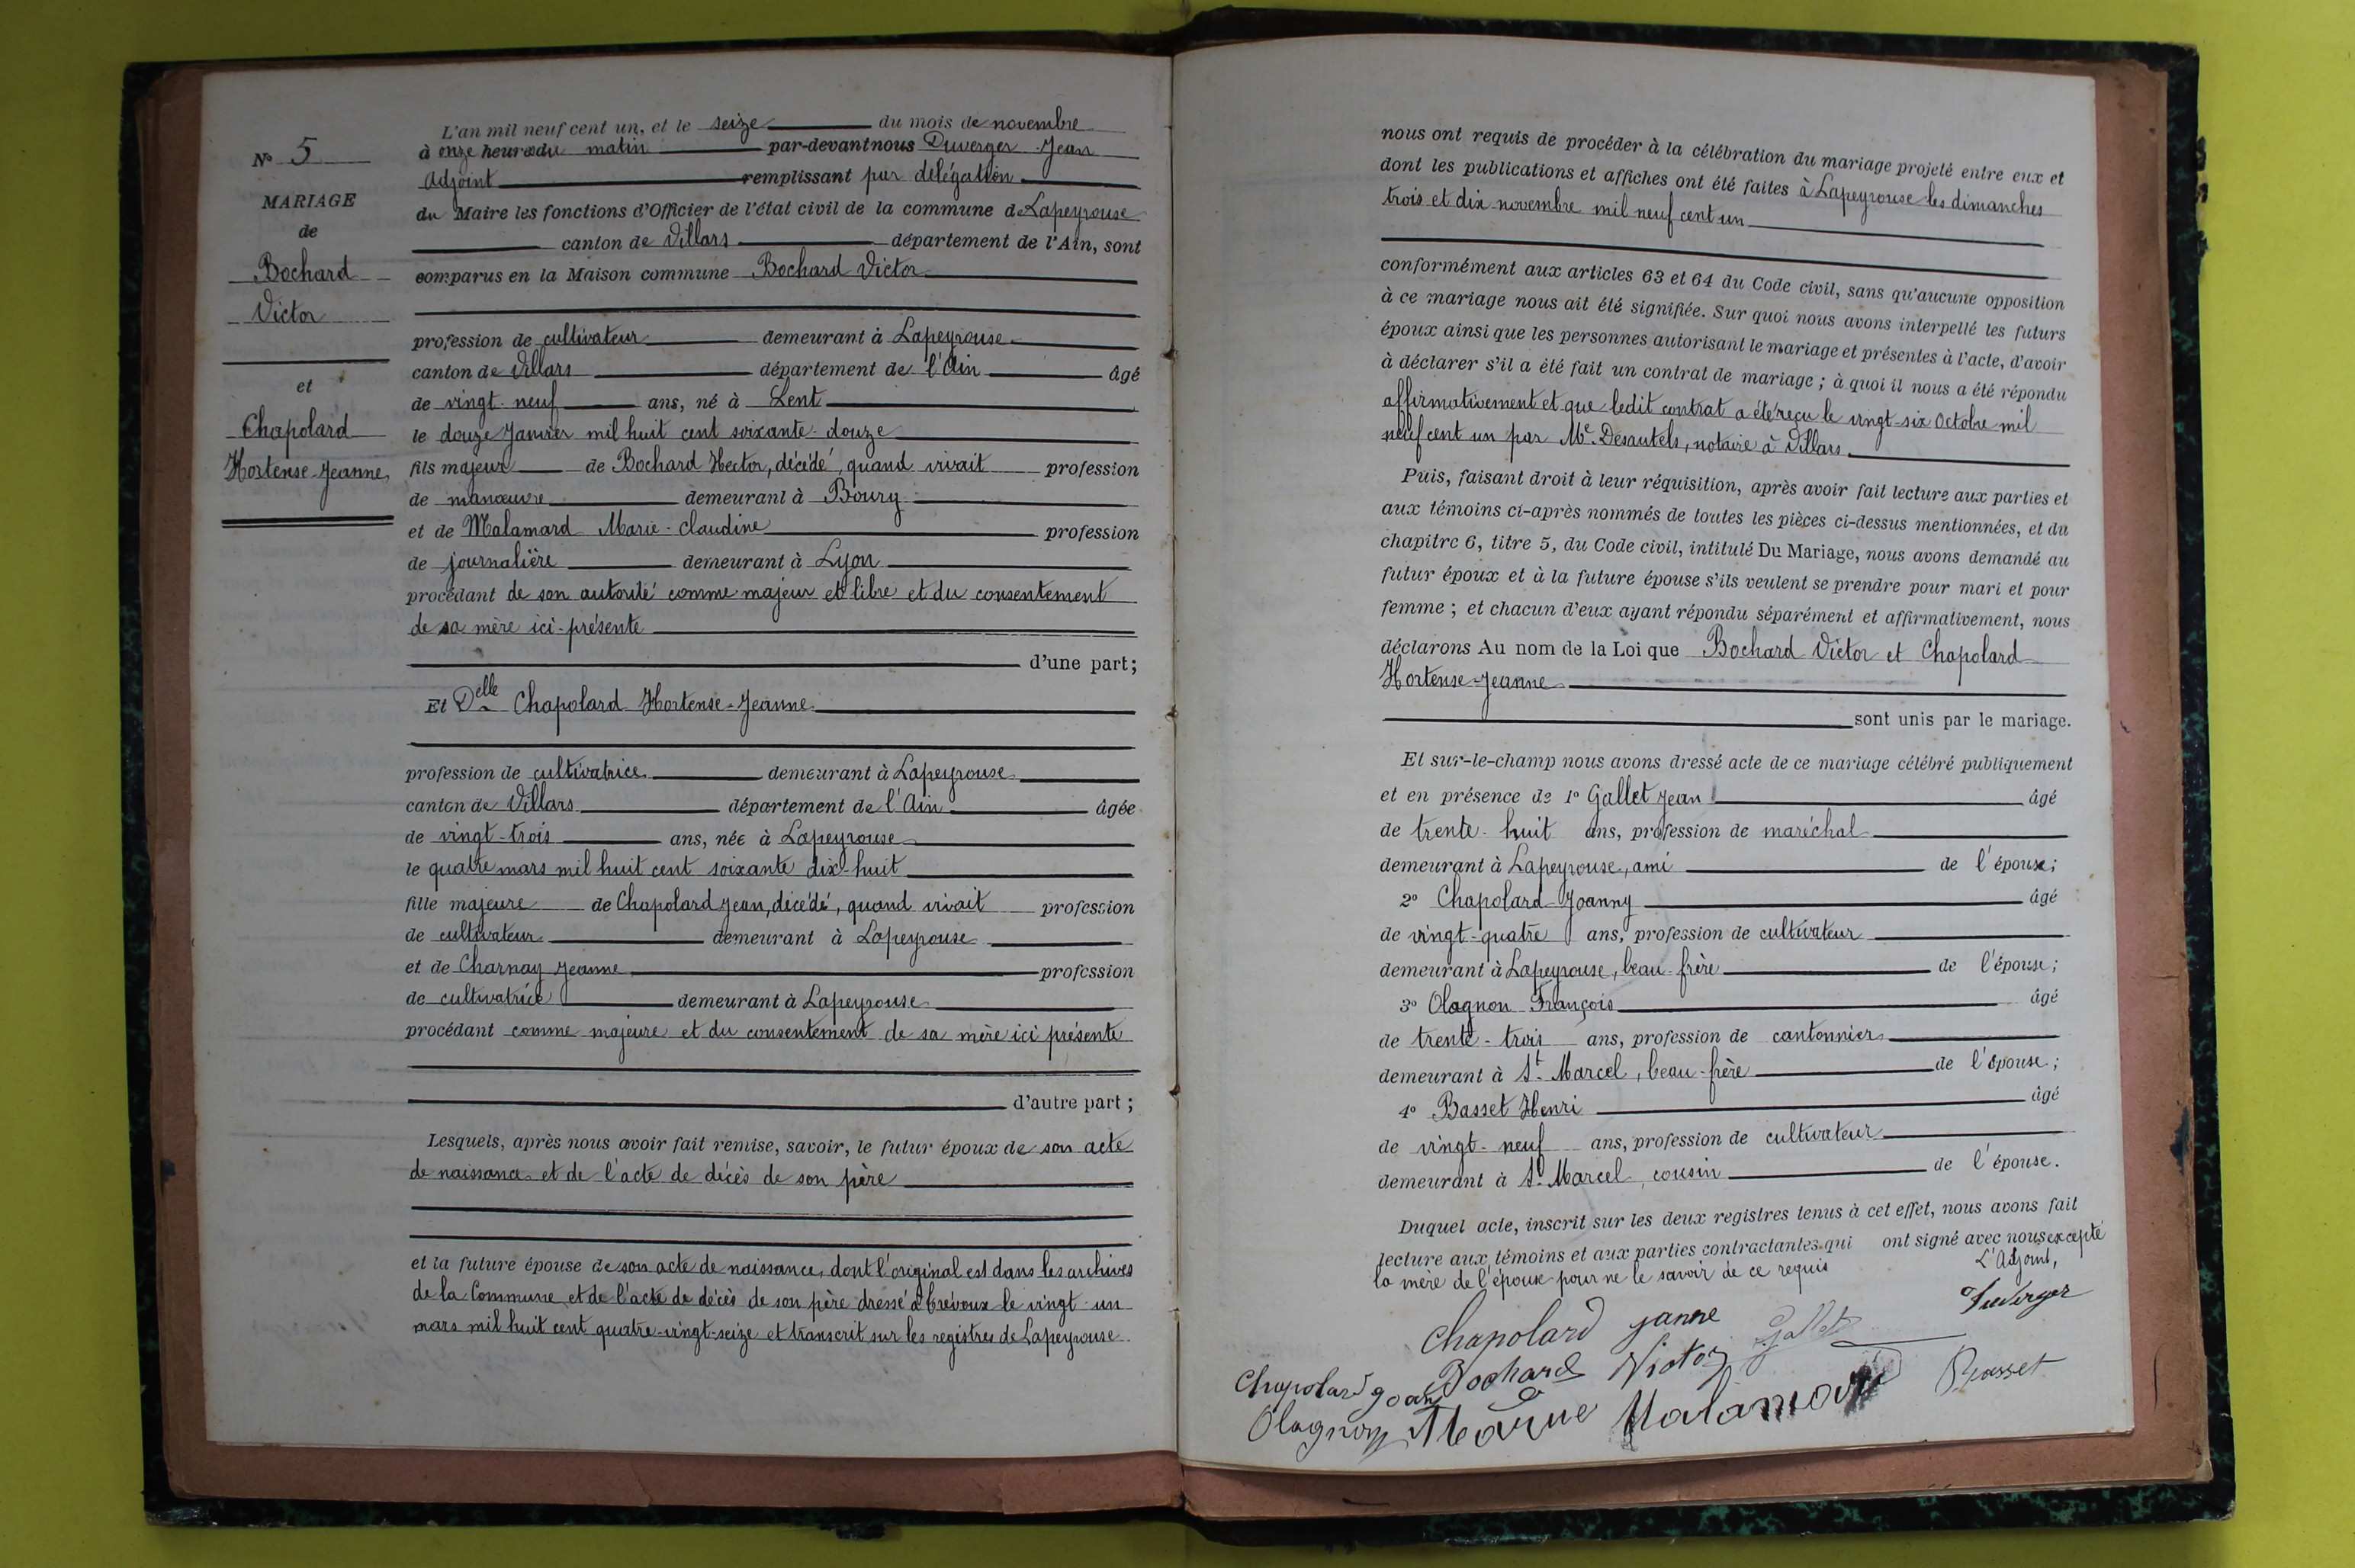 N° 5
MARIAGE
de
Bochard
Victor
et
Chapolard
Hortense-Jeanne
L'an mil neuf cent un, et le seize du mois de novembre
à onze heures du matin par-devant nous Duverger Jean
Adjoint remplissant par délégation
du Maire les fonctions d'Officier de l'état civil de la commune de Lapeyrouse
canton de Villars département de l'Ain, sont
comparus en la Maison commune Bochard Victor
profession de cultivateur demeurant à Lapeyrouse
canton de Villars département de l'Ain âgé
de vingt-neuf ans, né à Lent
le douze Janvier mil huit cent soixante-douze
fils majeur de Bochard Hector, décédé, quand vivait profession
de manœuvre demeurant à Bourg
et de Malamard Marie-Claudine profession
de journalière demeurant à Lyon
procédant de son autorité comme majeur et libre et du consentement
de sa mère ici-présente
d'une part;
Et Delle Chapolard Hortense-Jeanne
profession de cultivatrice demeurant à Lapeyrouse
canton de Villars département de l'Ain âgée
de vingt-trois ans, née à Lapeyrouse
le quatre mars mil huit cent soixante dix-huit
fille majeure de Chapolard Jean, décédé, quand vivait profession
de cultivateur demeurant à Lapeyrouse
et de Charnay Jeanne profession
de cultivatrice demeurant à Lapeyrouse
procédant comme majeure et du consentement de sa mère ici présente
d'autre part;
Lesquels, après nous avoir fait remise, savoir, le futur époux de son acte
de naissance et de l'acte de décès de son père
et la future épouse de son acte de naissance, dont l'original est dans les archives
de la Commune et de l'acte de décès de son père dressé à Trévoux le vingt-un
mars mil huit cent quatre-vingt-seize et transcrit sur les registres de Lapeyrouse
nous ont requis de procéder à la célébration du mariage projeté entre eux et
dont les publications et affiches ont été faites à Lapeyrouse les dimanches
trois et dix novembre mil neuf cent un
conformément aux articles 63 et 64 du Code civil, sans qu'aucune opposition
à ce mariage nous ait été signifiée. Sur quoi nous avons interpellé les futurs
époux ainsi que les personnes autorisant le mariage et présentes à l'acte, d'avoir
à déclarer s'il a été fait un contrat de mariage; à quoi il nous a été répondu
affirmativement et que ledit contrat a été reçu le vingt-six Octobre mil
neuf cent un par Me Desautels, notaire à Villars
Puis, faisant droit à leur réquisition, après avoir fait lecture aux parties et
aux témoins ci-après nommés de toutes les pièces ci-dessus mentionnées, et du
chapitre 6, titre 5, du Code civil, intitulé Du Mariage, nous avons demandé au
futur époux et à la future épouse s'ils veulent se prendre pour mari et pour
femme; et chacun d'eux ayant répondu séparément et affirmativement, nous
déclarons Au nom de la Loi que Bochard Victor et Chapolard
Hortense-Jeanne
sont unis par le mariage.
Et sur-le-champ nous avons dressé acte de ce mariage célébré publiquement
et en présence de 1° Gallet Jean âgé
de trente-huit ans, profession de maréchal
demeurant à Lapeyrouse, ami de l'épouse;
2° Chapolard Joanny âgé
de vingt-quatre ans, profession de cultivateur
demeurant à Lapeyrouse, beau-frère de l'épouse;
3° Olagnon François âgé
de trente-trois ans, profession de cantonnier
demeurant à St. Marcel, beau-frère de l'épouse;
4° Basset Henri âgé
de vingt-neuf ans, profession de cultivateur
demeurant à St. Marcel, cousin de l'épouse.
Duquel acte, inscrit sur les deux registres tenus à cet effet, nous avons fait
lecture aux témoins et aux parties contractantes qui ont signé avec nous excepté
la mère de l'épouse pour ne le savoir de ce requis
L'Adjoint,
Duverger
Chapolard Janne
Gallet
Chapolard Joany
Bochard Victor
Basset
Olagnon
Marie Malamard